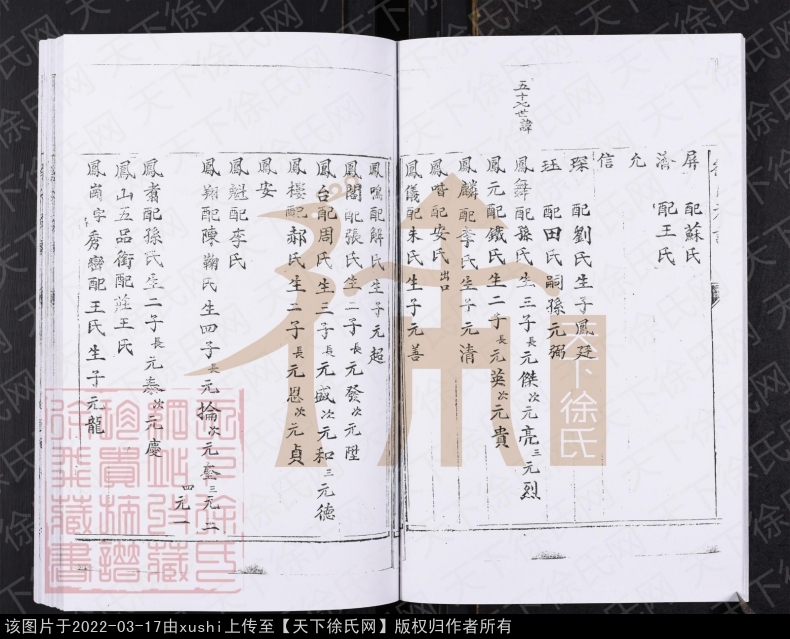 屏 配蘇氏
濟 配王氏
允
信
琛 配劉氏生子鳳廷
珏 配田氏嗣孫元弼
五十九世諱
鳳舞配孫氏生三子長元傑次元亮三元烈
鳳元配鐵氏生二子長元英次元貴
鳳麟配李氏生子元清
鳳喈配安氏出口
鳳儀配朱氏生子元善
鳳鳴配解氏生子元超
鳳閣配張氏生二子長元發次元陞
鳳台配周氏生三子長元盛次元和三元德
鳳樓配郝氏生二子長元恩次元貞
鳳安
鳳魁配李氏
鳳翔配陳鞠氏生四子長元掄次元奎三元二
四元一
鳳翥配孫氏生二子長元泰次元慶
鳳山五品銜配莊王氏
鳳崗字秀巒配王氏生子元龍
天下徐氏
天下徐氏网
该图片于2022-03-17由xushi上传至【天下徐氏网】版权归作者所有